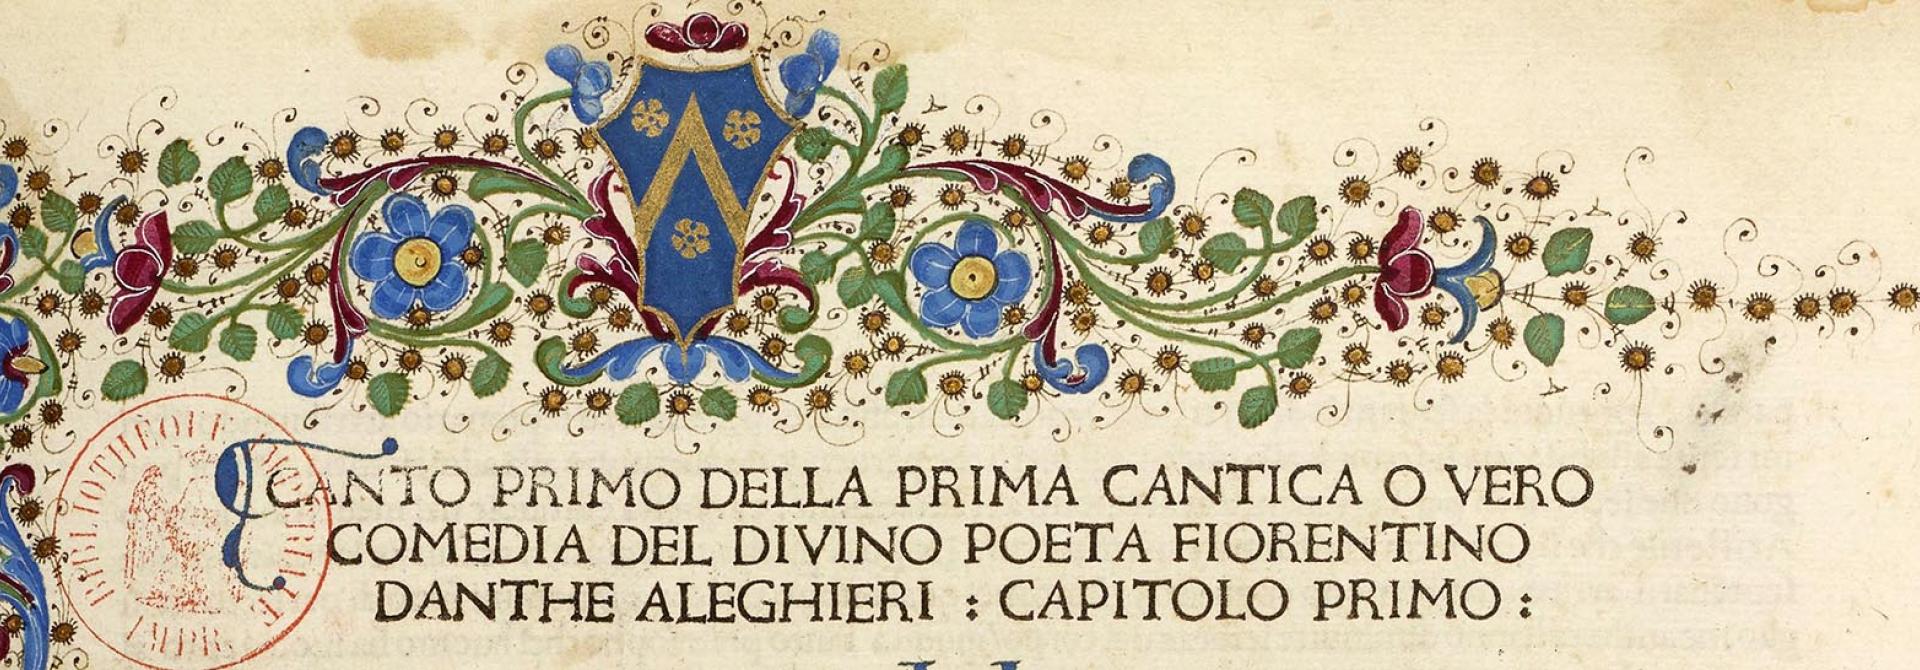 CANTO PRIMO DELLA PRIMA CANTICA O VERO
COMEDIA DEL DIVINO POETA FIORENTINO
DANTHE ALEGHIERI : CAPITOLO PRIMO :
BIBLIOTHÈQUE IMPÉRIALE
IMPR